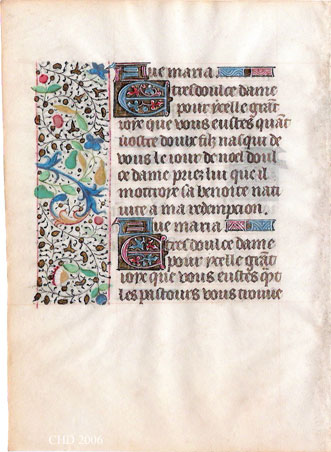 Aue maria
Et tresdoulce dame
pour ycelle grant
ioye que vous eustes quāt
vostre doulx filz nasqui de
vous le iour de noel doul
ce dame pries lui que il
mottroye sa benoite nati
uite a ma redempcion.
Aue maria
Et tresdoulce dame
pour ycelle grant
ioye que vous eustes qn̄t
les pastours vous trouue
CHD 2006